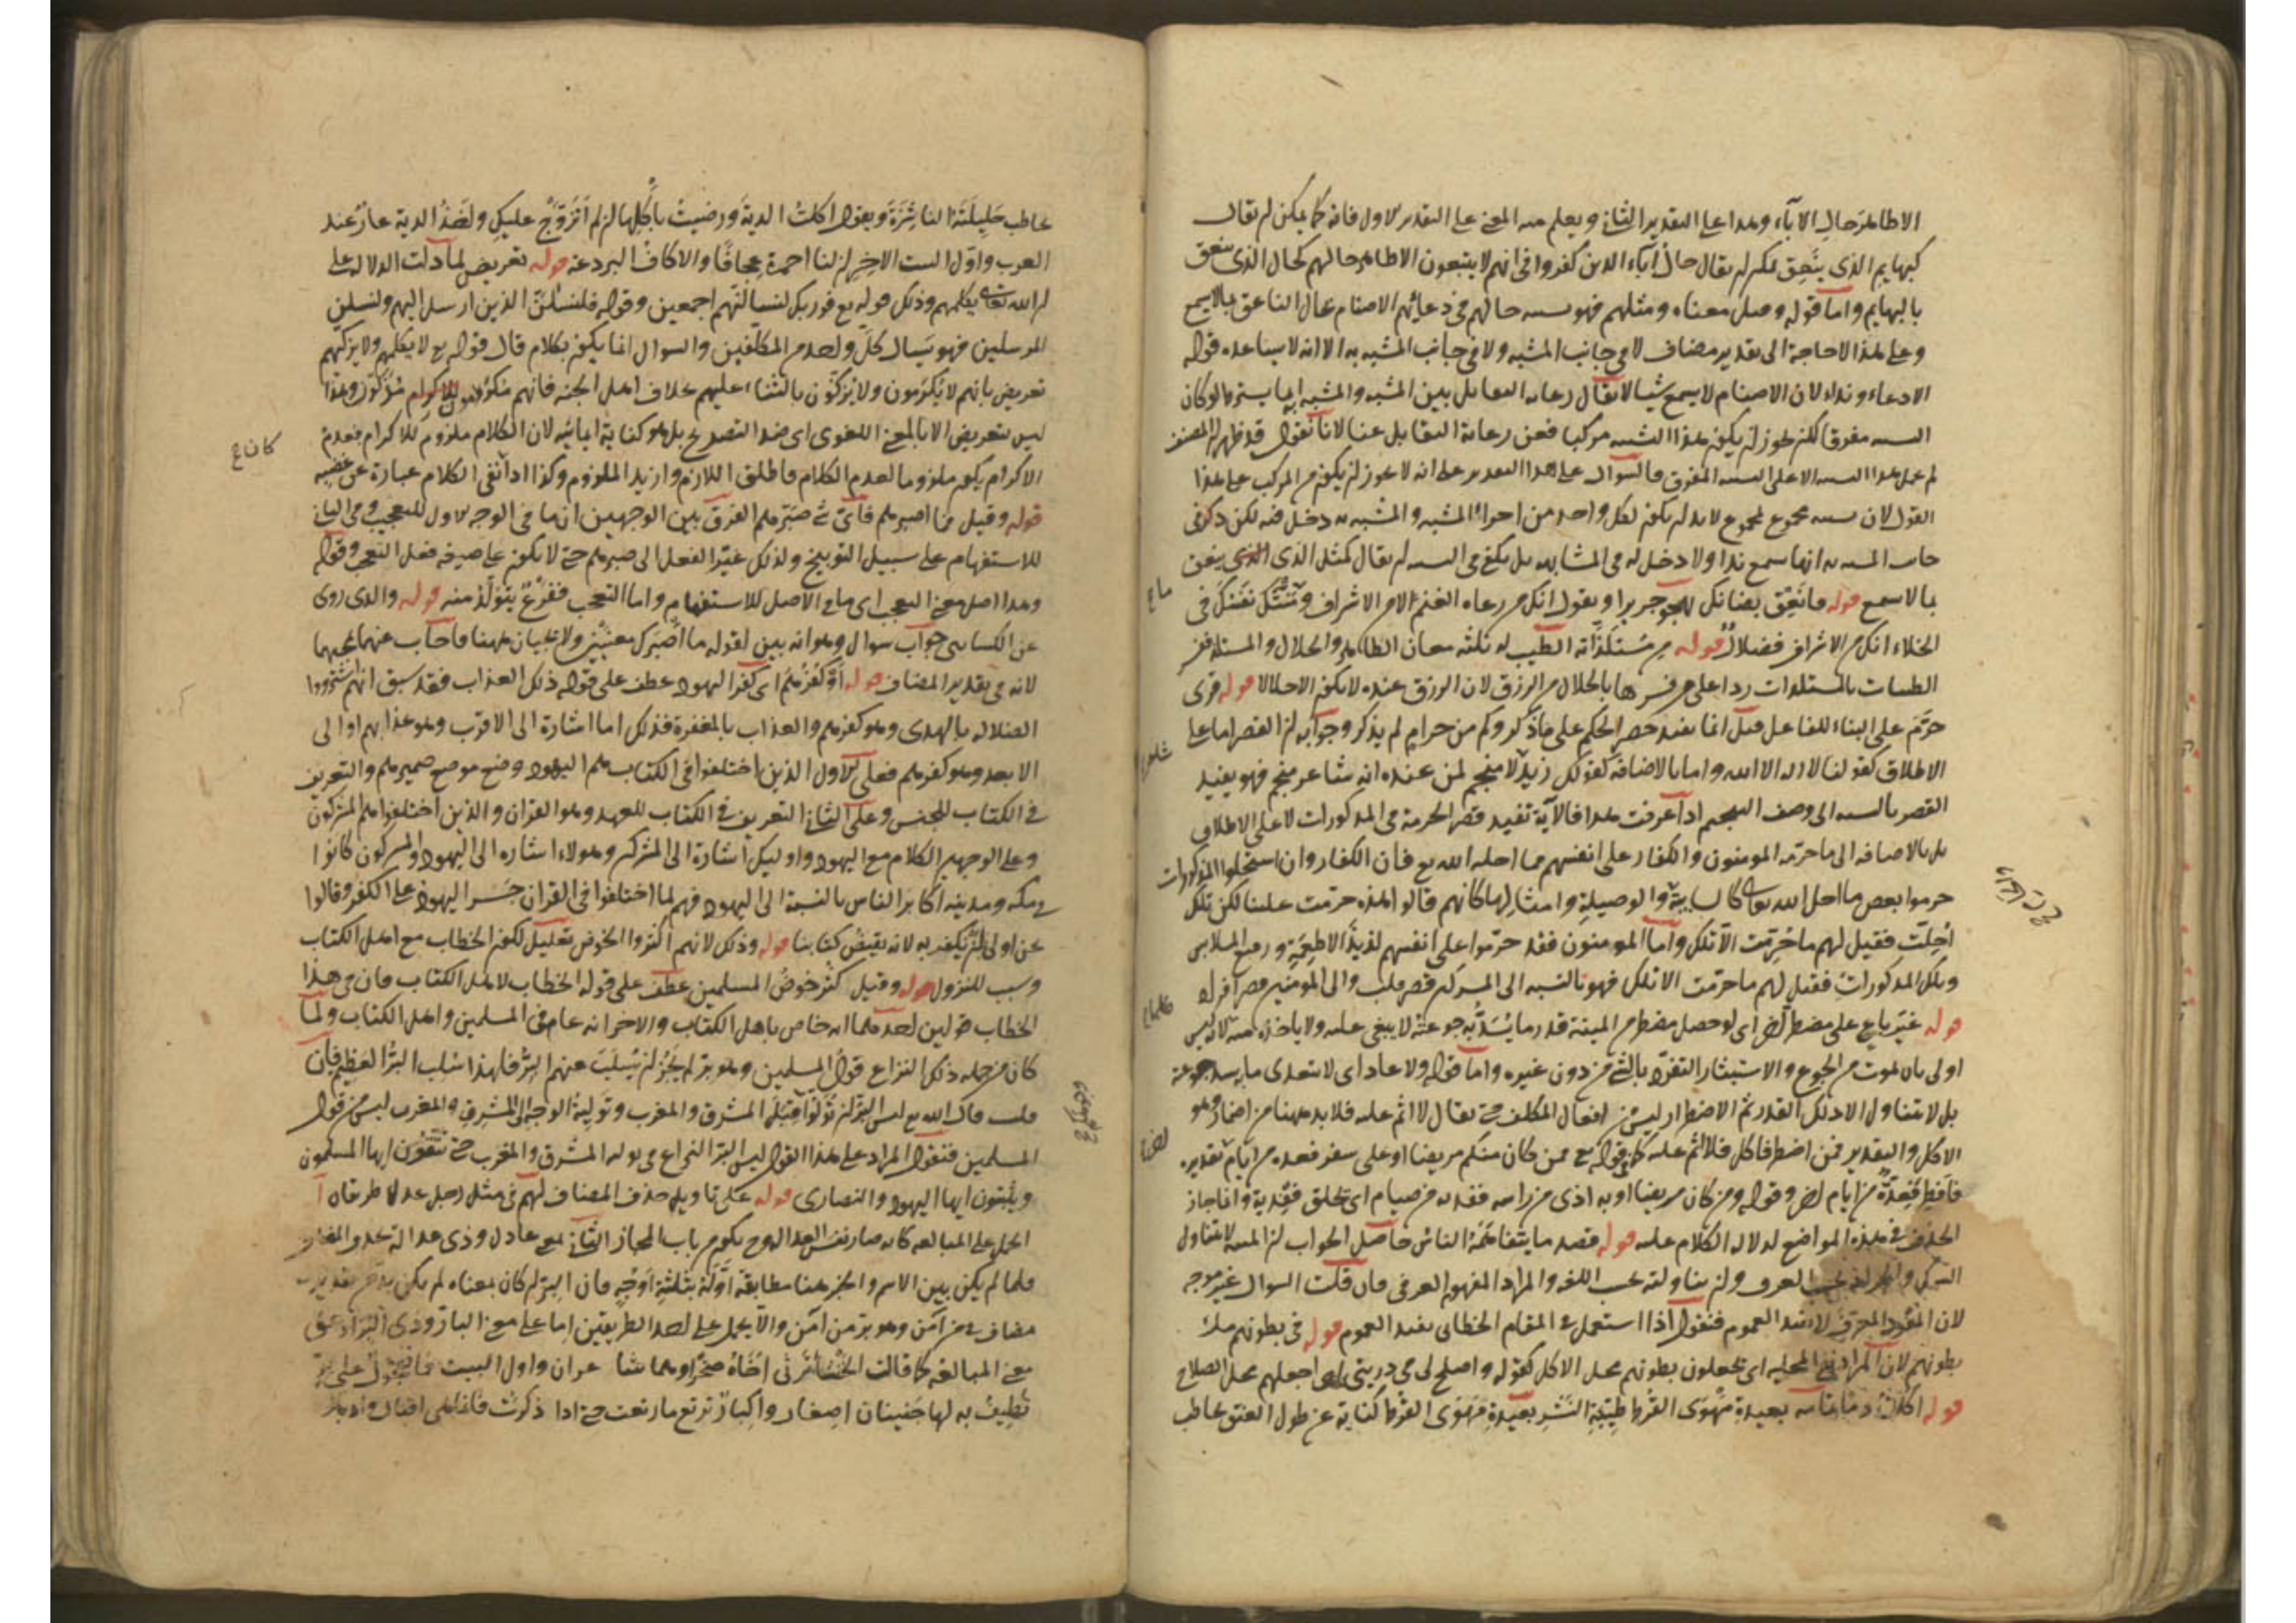 الا ظاهر حال الآباء وهذا على التقدير الثاني ويعلم منه المعنى على التقدير الاول فانه كما يمكن ان يقال
كبهايم الذي ينعق لكن ان يقال حال آباء الذين كفروا في انهم لا يتبعون الا ظاهر حالهم كحال الذي ينعق
بالبهايم واما قوله وقيل معناه ومثلهم فهو تشبيه حالهم في دعائهم الاصنام بحال الناعق بما لا يسمع
وعلى هذا لا حاجة الى تقدير مضاف لا في جانب المشبه ولا في جانب المشبه به الا انه لا يساعده قوله
الا دعاء ونداء لان الاصنام لا يسمع شيا لا يقال رعاية التقابل بين المشبه والمشبه به انما يشترط لو كان
التشبيه مفرقا لكن يجوز ان يكون هذا التشبيه مركبا فعن رعاية التقابل عنا لانا نقول قد ظهر ان المصنف
لم يحمل هذا التشبيه الا على التشبيه المفرق فالسوال على هذا التقدير على انه لا يجوز ان يكون من المركب على هذا
القول لان تشبيه مجموع بمجموع لا بد ان يكون لكل واحد من اجزاء المشبه والمشبه به دخل فيه لكن ذكر في
جانب المشبه به انها تسمع نداء ولا دخل له في المشابهة بل يكفي في التشبيه ان يقال كمثل الذي ينعق
بما لا يسمع قوله فانعق بضانك يهجو جريرا ويقول انك من رعاة الغنم لا من الاشراف ومنتك نفسك في
الخلاء انك من الاشراف فضلالا قوله من مستلذاته الطيب له ثلثة معان الظاهر والحلال والمستلذ ففسر
الطيبات بالمستلذات ردا على من فسرها بالحلال من الرزق لان الرزق عنده لا يكون الا حلالا قوله قرى
حرم على البناء للفاعل قيل انما يفيد حصر الحكم على ما ذكر وكم من حرام لم يذكر وجوابه ان القصر اما على
الاطلاق كقولنا لا اله الا الله واما بالاضافة كقولك زيد لا منجم لمن عنده انه شاعر منجم فهو يفيد
القصر بالنسبة الى وصف التنجيم اذا عرفت هذا فالآية تفيد قصر الحرمة في المذكورات لا على الاطلاق
بل بالاضافة الى ما حرمه المومنون والكفار على انفسهم مما احله الله تع فان الكفار وان استحلوا المذكورات
حرموا بعض ما احل الله تعالى كالسايبة والوصيلة وامثالها كانهم قالوا هذه حرمت علينا لكن تلك
احلت فقيل لهم ما حرمت الا تلك واما المومنون فقد حرموا على انفسهم لذيذ الاطعمة ورفيع الملابس
وتلك المذكورات فقيل لهم ما حرمت الا تلك فهو بالنسبة الى المشركين قصر قلب والى المومنين قصر افراد
قوله غير باغ على مضطر آخر اى لو حصل مضطر من الميتة قدر ما يسد به جوعته لا يبغى عليه ولا ياخذه منه لانه ليس
اولى بان يموت من الجوع والاستيثار التفرد بالشئ من دون غيره واما قوله ولا عاد اى لا يتعدى ما يسد جوعته
بل لا يتناول الا ذلك القدر ثم الاضطرار ليس من افعال المكلف حتى يقال لا اثم عليه فلا بد ههنا من اضمار وهو
الاكل والتقدير فمن اضطر فاكل فلا اثم عليه كما في قوله تع فمن كان منكم مريضا او على سفر فعدة من ايام تقديره
فافطر فعدة من ايام اخر وقوله ومن كان مريضا او به اذى من راسه ففدية من صيام اى فحلق ففدية وانما جاز
الحذف في هذه المواضع لدلالة الكلام عليه قوله قصد ما يتفاهمه الناس حاصل الجواب ان الميتة لا يتناول
السمك والجراد بحسب العرف وان يتناولته بحسب اللغة والمراد المفهوم العرفي فان قلت السوال غير موجه
لان المفرد المعرف لا يفيد العموم فنقول اذا استعمل في المقام الخطابى يفيد العموم قوله في بطونهم ملأ
بطونهم لان المراد المحلية اى يجعلون بطونهم محل الاكل كقوله واصلح لي في ذريتي اى اجعلهم محل الصلاح
قوله اكلت دما تمامه بعيدة مهوى القرط طيبة النشر بعيدة مهوى القرط كناية عن طول العنق يخاطب
ما ع
يخاطب حليلته الناشزة ويقول اكلت الدية ورضيت باكلها ان لم اتزوج عليك واخذ الدية عار عند
العرب واول البيت الاخر ان لنا احمرة عجافا والاكاف البردعة قوله تعريض لما دلت الدلالة على
ان الله تعالى يكلمهم وذلك قوله تع فوربك لنسالنهم اجمعين وقوله فلنسئلن الذين ارسل اليهم ولنسئلن
المرسلين فهو يسال كل واحد من المكلفين والسوال انما يكون بكلام قال قوله تع لا يكلمهم ولا يزكيهم
تعريض بانهم لا يكرمون ولا يزكون بالثناء عليهم بخلاف اهل الجنة فانهم مكرمون مزكون وهذا
ليس بتعريض الا بالمعنى اللغوى اى ضد التصريح بل هو كناية ايمائية لان الكلام ملزوم للاكرام فعدم
الاكرام يكون ملزوما لعدم الكلام فاطلق اللازم واريد الملزوم وكذا اذا نفى الكلام عبارة عن غضبه
قوله وقيل فما اصبرهم فاى شئ صبرهم الفرق بين الوجهين ان ما في الوجه الاول للتعجب وفي الثاني
للاستفهام على سبيل التوبيخ ولذلك غير الفعل الى صبرهم حتى لا يكون على صيغة فعل التعجب وقوله
وهذا اصل معنى التعجب اى ما في الاصل للاستفهام واما التعجب ففرع يتولد منه قوله والذى روى
عن الكسائى جواب سوال وهو انه بين لقوله ما اصبرك معنيين ولا يجيان ههنا فاجاب عنهما
لانه في تقدير المضاف قوله او كفرهم اى كفر اليهود عطف على قوله ذلك العذاب فقد سبق انهم اشتروا
الضلالة بالهدى وهو كفرهم والعذاب بالمغفرة فذلك اما اشارة الى الاقرب وهو عذابهم او الى
الابعد وهو كفرهم فعلى الاول الذين اختلفوا في الكتاب هم اليهود وضع موضع ضميرهم والتعريف
في الكتاب للجنس وعلى الثاني التعريف في الكتاب للعهد وهو القران والذين اختلفوا هم المشركون
وعلى الوجهين الكلام مع اليهود واوليك اشارة الى المشركين وهولاء اشارة الى اليهود والمشركون كانوا
في مكة ومدينة اكابر الناس بالنسبة الى اليهود فهم لما اختلفوا في القران جسر اليهود على الكفر وقالوا
نحن اولى ان نكفر به لانه نقيض كتابنا قوله وذلك لانهم اكثروا الخوض تعليل لكون الخطاب مع اهل الكتاب
وسبب للنزول قوله وقيل كثر خوض المسلمين عطف على قوله الخطاب لاهل الكتاب فان في هذا
الخطاب قولين احدهما انه خاص باهل الكتاب والاخر انه عام في المسلمين واهل الكتاب ولما
كان من جملة ذلك النزاع قول المسلمين وهو بر لم يجز ان يسلب عنهم البر فلهذا سلب البر العظيم فان
قلت قال الله تع ليس البر ان تولوا قبل المشرق والمغرب وتولية الوجه الى المشرق والمغرب ليس من قول
المسلمين فنقول المراد على هذا القول ليس البر النزاع في تولية المشرق والمغرب حتى تنفون ايها المسلمون
ويثبتون ايها اليهود والنصارى قوله على تاويل حذف المضاف لهم في مثل رجل عدل طريقان
الحمل على المبالغة كانه صار نفس العدالة وح يكون من باب المجاز الثاني بمعنى عادل وذى عدالة
فلما لم يكن بين الاسم والخبر هنا مطابقة اوله بثلثة اوجه فان البر ان كان بمعناه لم يكن بد من تقدير
مضاف في من آمن وهو بر من آمن والا يحمل على احد الطريقين اما على معنى البار وذى البر او على
معنى المبالغة كما قالت الخنساء ترثى اخاه صخرا وهما شاعران واول البيت فما عجول على بو
تطيف به لها حنينان اصغار واكبار ترتع ما رتعت حتى اذا ذكرت فانما هى اقبال وادبار
كان ع